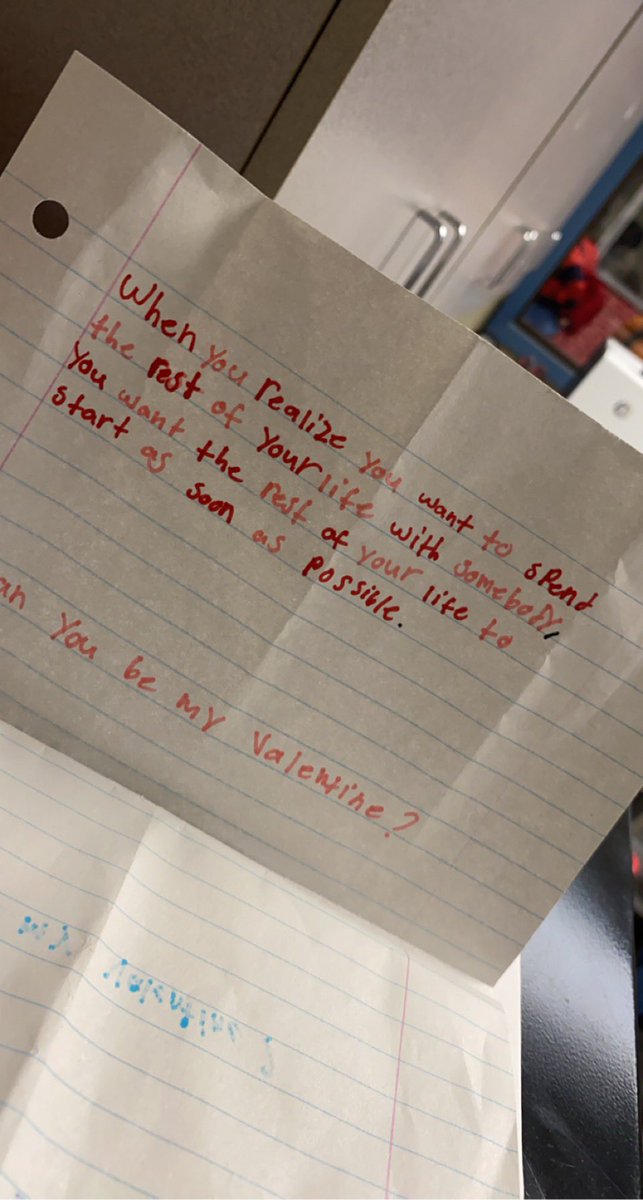 When you realize you want to spend
the rest of your life with somebody,
You want the rest of your life to
start as soon as possible.
an you be my valentine?